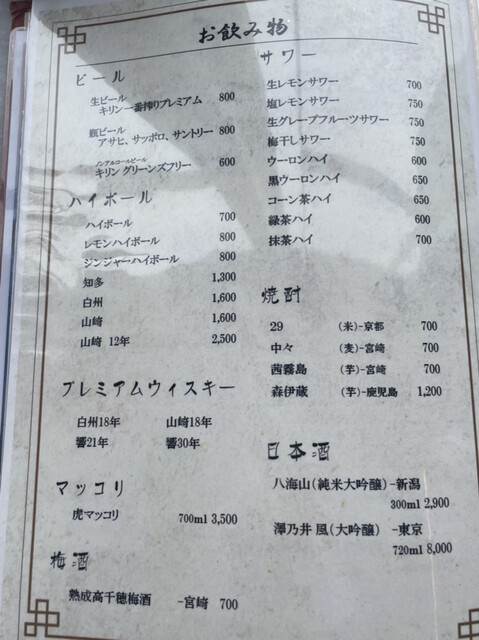 お飲み物
ビール
生ビール
キリン一番搾りプレミアム 800
瓶ビール
アサヒ、サッポロ、サントリー 800
ノンアルコールビール
キリン グリーンズフリー 600
ハイボール
ハイボール 700
レモンハイボール 800
ジンジャーハイボール 800
知多 1,300
白州 1,600
山崎 1,600
山崎 12年 2,500
プレミアムウィスキー
白州18年 山崎18年
響21年 響30年
マッコリ
虎マッコリ 700ml 3,500
梅酒
熟成高千穂梅酒 -宮崎 700
サワー
生レモンサワー 700
塩レモンサワー 750
生グレープフルーツサワー 750
梅干しサワー 750
ウーロンハイ 600
黒ウーロンハイ 650
コーン茶ハイ 650
緑茶ハイ 600
抹茶ハイ 700
焼酎
29 (米)-京都 700
中々 (麦)-宮崎 700
茜霧島 (芋)-宮崎 700
森伊蔵 (芋)-鹿児島 1,200
日本酒
八海山(純米大吟醸)-新潟
300ml 2,900
澤乃井 凰(大吟醸) -東京
720ml 8,000